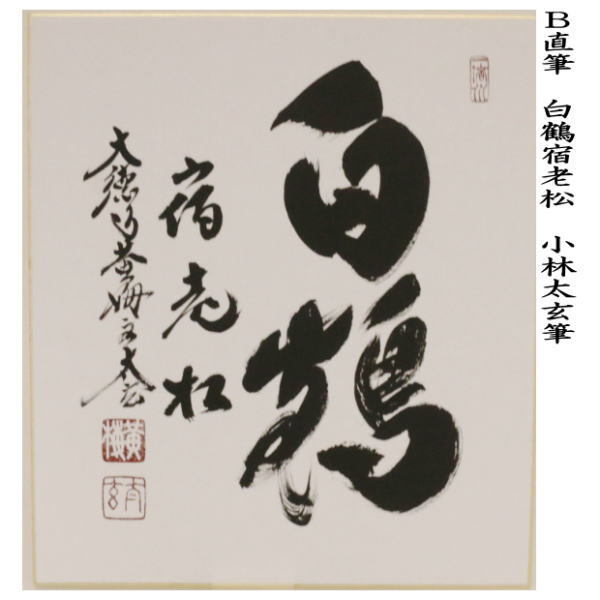 B直筆　白鶴宿老松　小林太玄筆
白鶴
宿老松
黄梅
太玄